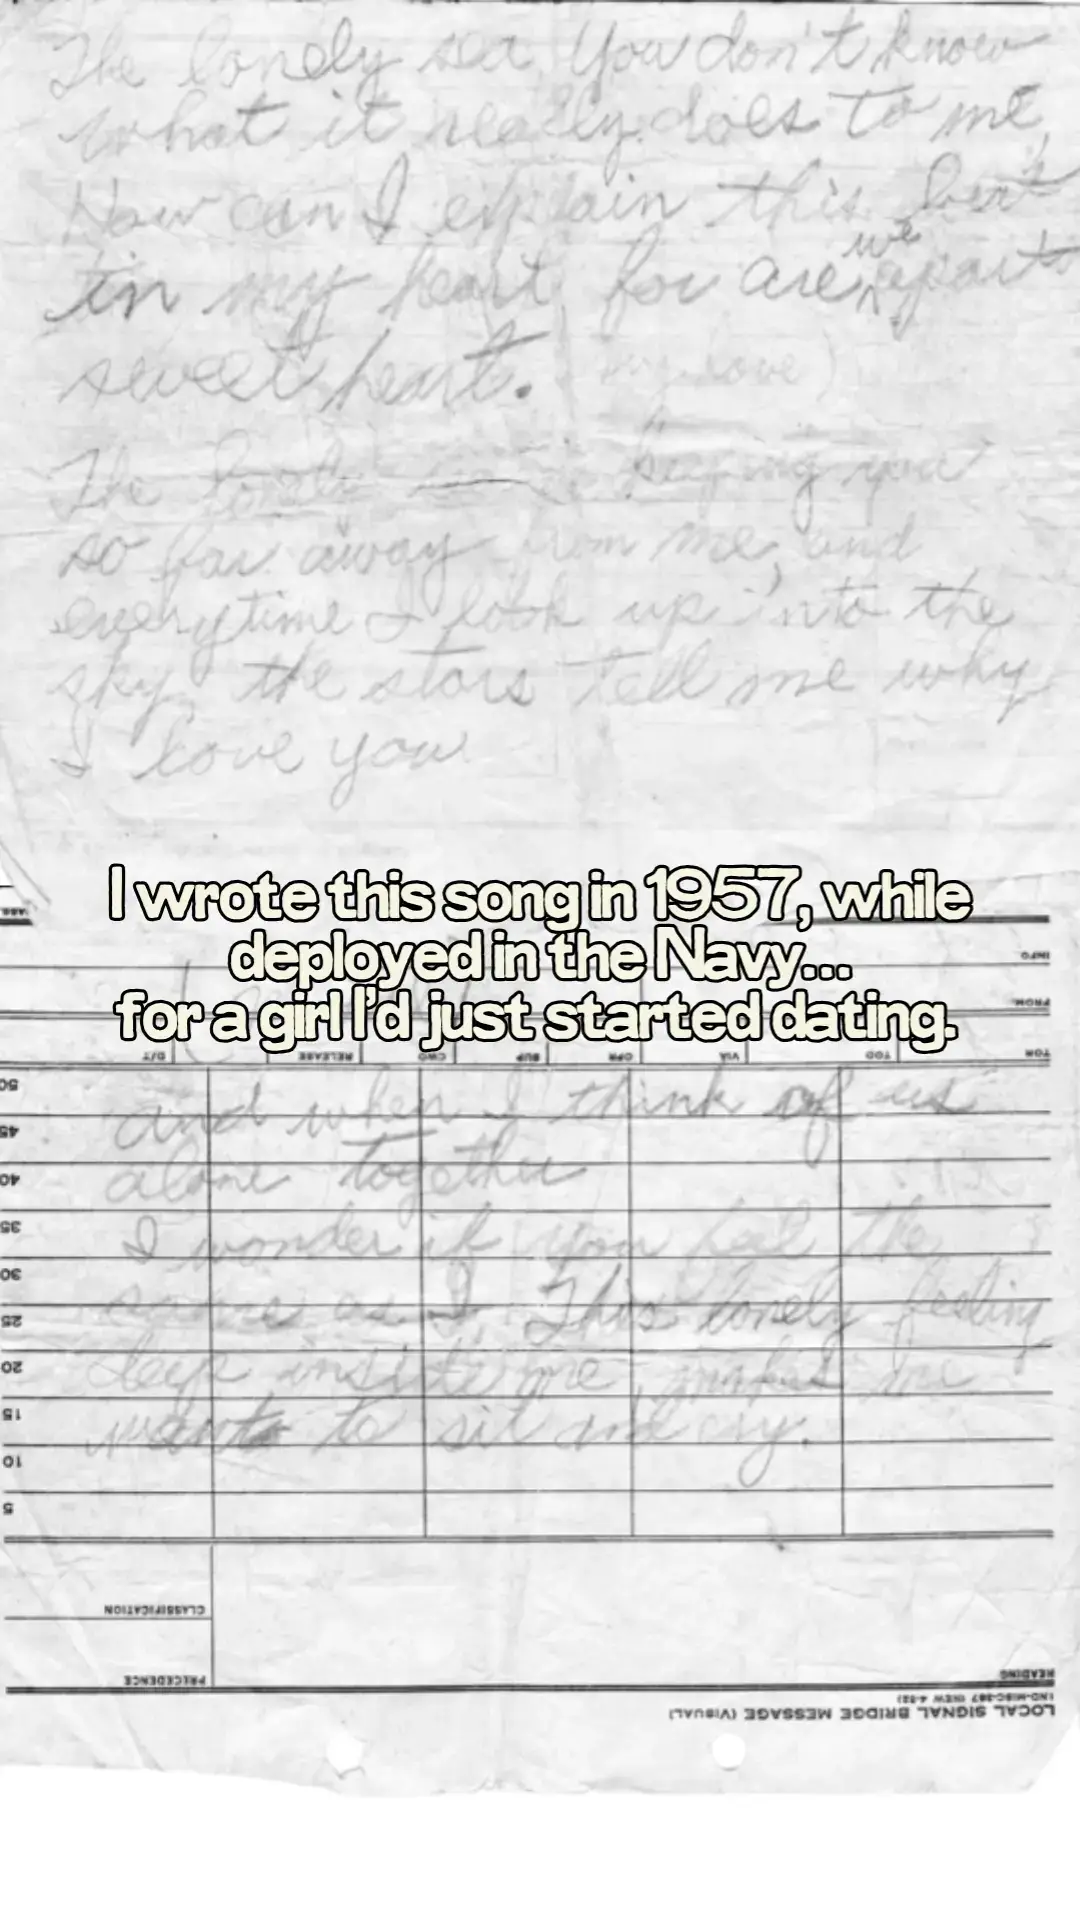 The lonely sea, You don't know
what it really does to me,
How can I explain this hert
in my heart for are we apart
sweet heart. (my love)
The lonely keeping you
so far away from me, and
everytime I look up into the
sky, the stars tell me why
I love you
I wrote this song in 1957, while
deployed in the Navy...
for a girl I'd just started dating.
INFO
FROM
TOR TOD VIA OPR SUP CWO RELEASE D/T
and when I think of us
alone together
I wonder if you feel the
same as I. This lonely feeling
deep inside me, makes me
want to sit and cry.
50
45
40
35
30
25
20
15
10
5
CLASSIFICATION
PRECEDENCE
HEADING
LOCAL SIGNAL BRIDGE MESSAGE (VISUAL)